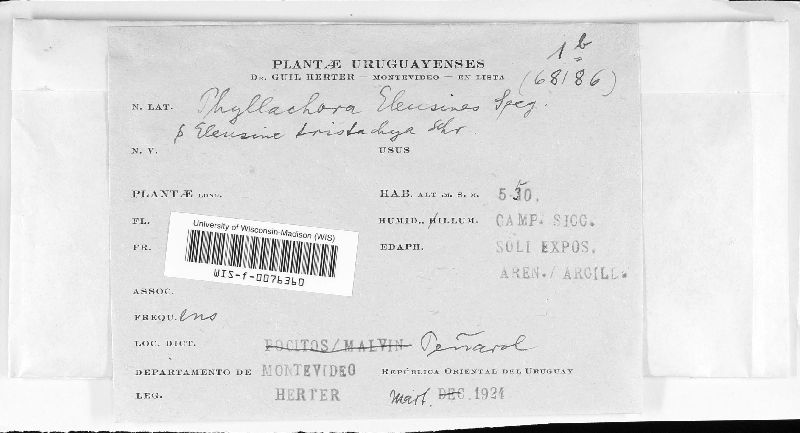 PLANTÆ URUGUAYENSES
1b
DR. GUIL HERTER — MONTEVIDEO — EN LISTA
(68186)
N. LAT. Phyllachora Eleusines Speg.
Eleusine tristachya Schr.
N. V. USUS
PLANTÆ LONG. HAB. ALT M. S. M. 5-30.
FL. HUMID., ILLUM. CAMP. SICC.
FR. EDAPH. SOLI EXPOS.
AREN./ARCILL.
University of Wisconsin-Madison (WIS)
WIS-f-0076360
ASSOC.
FREQU. ens
LOC. DICT. POCITOS/MALVIN Peñarol
DEPARTAMENTO DE MONTEVIDEO REPÚBLICA ORIENTAL DEL URUGUAY
LEG. HERTER Mart. DEC. 1924